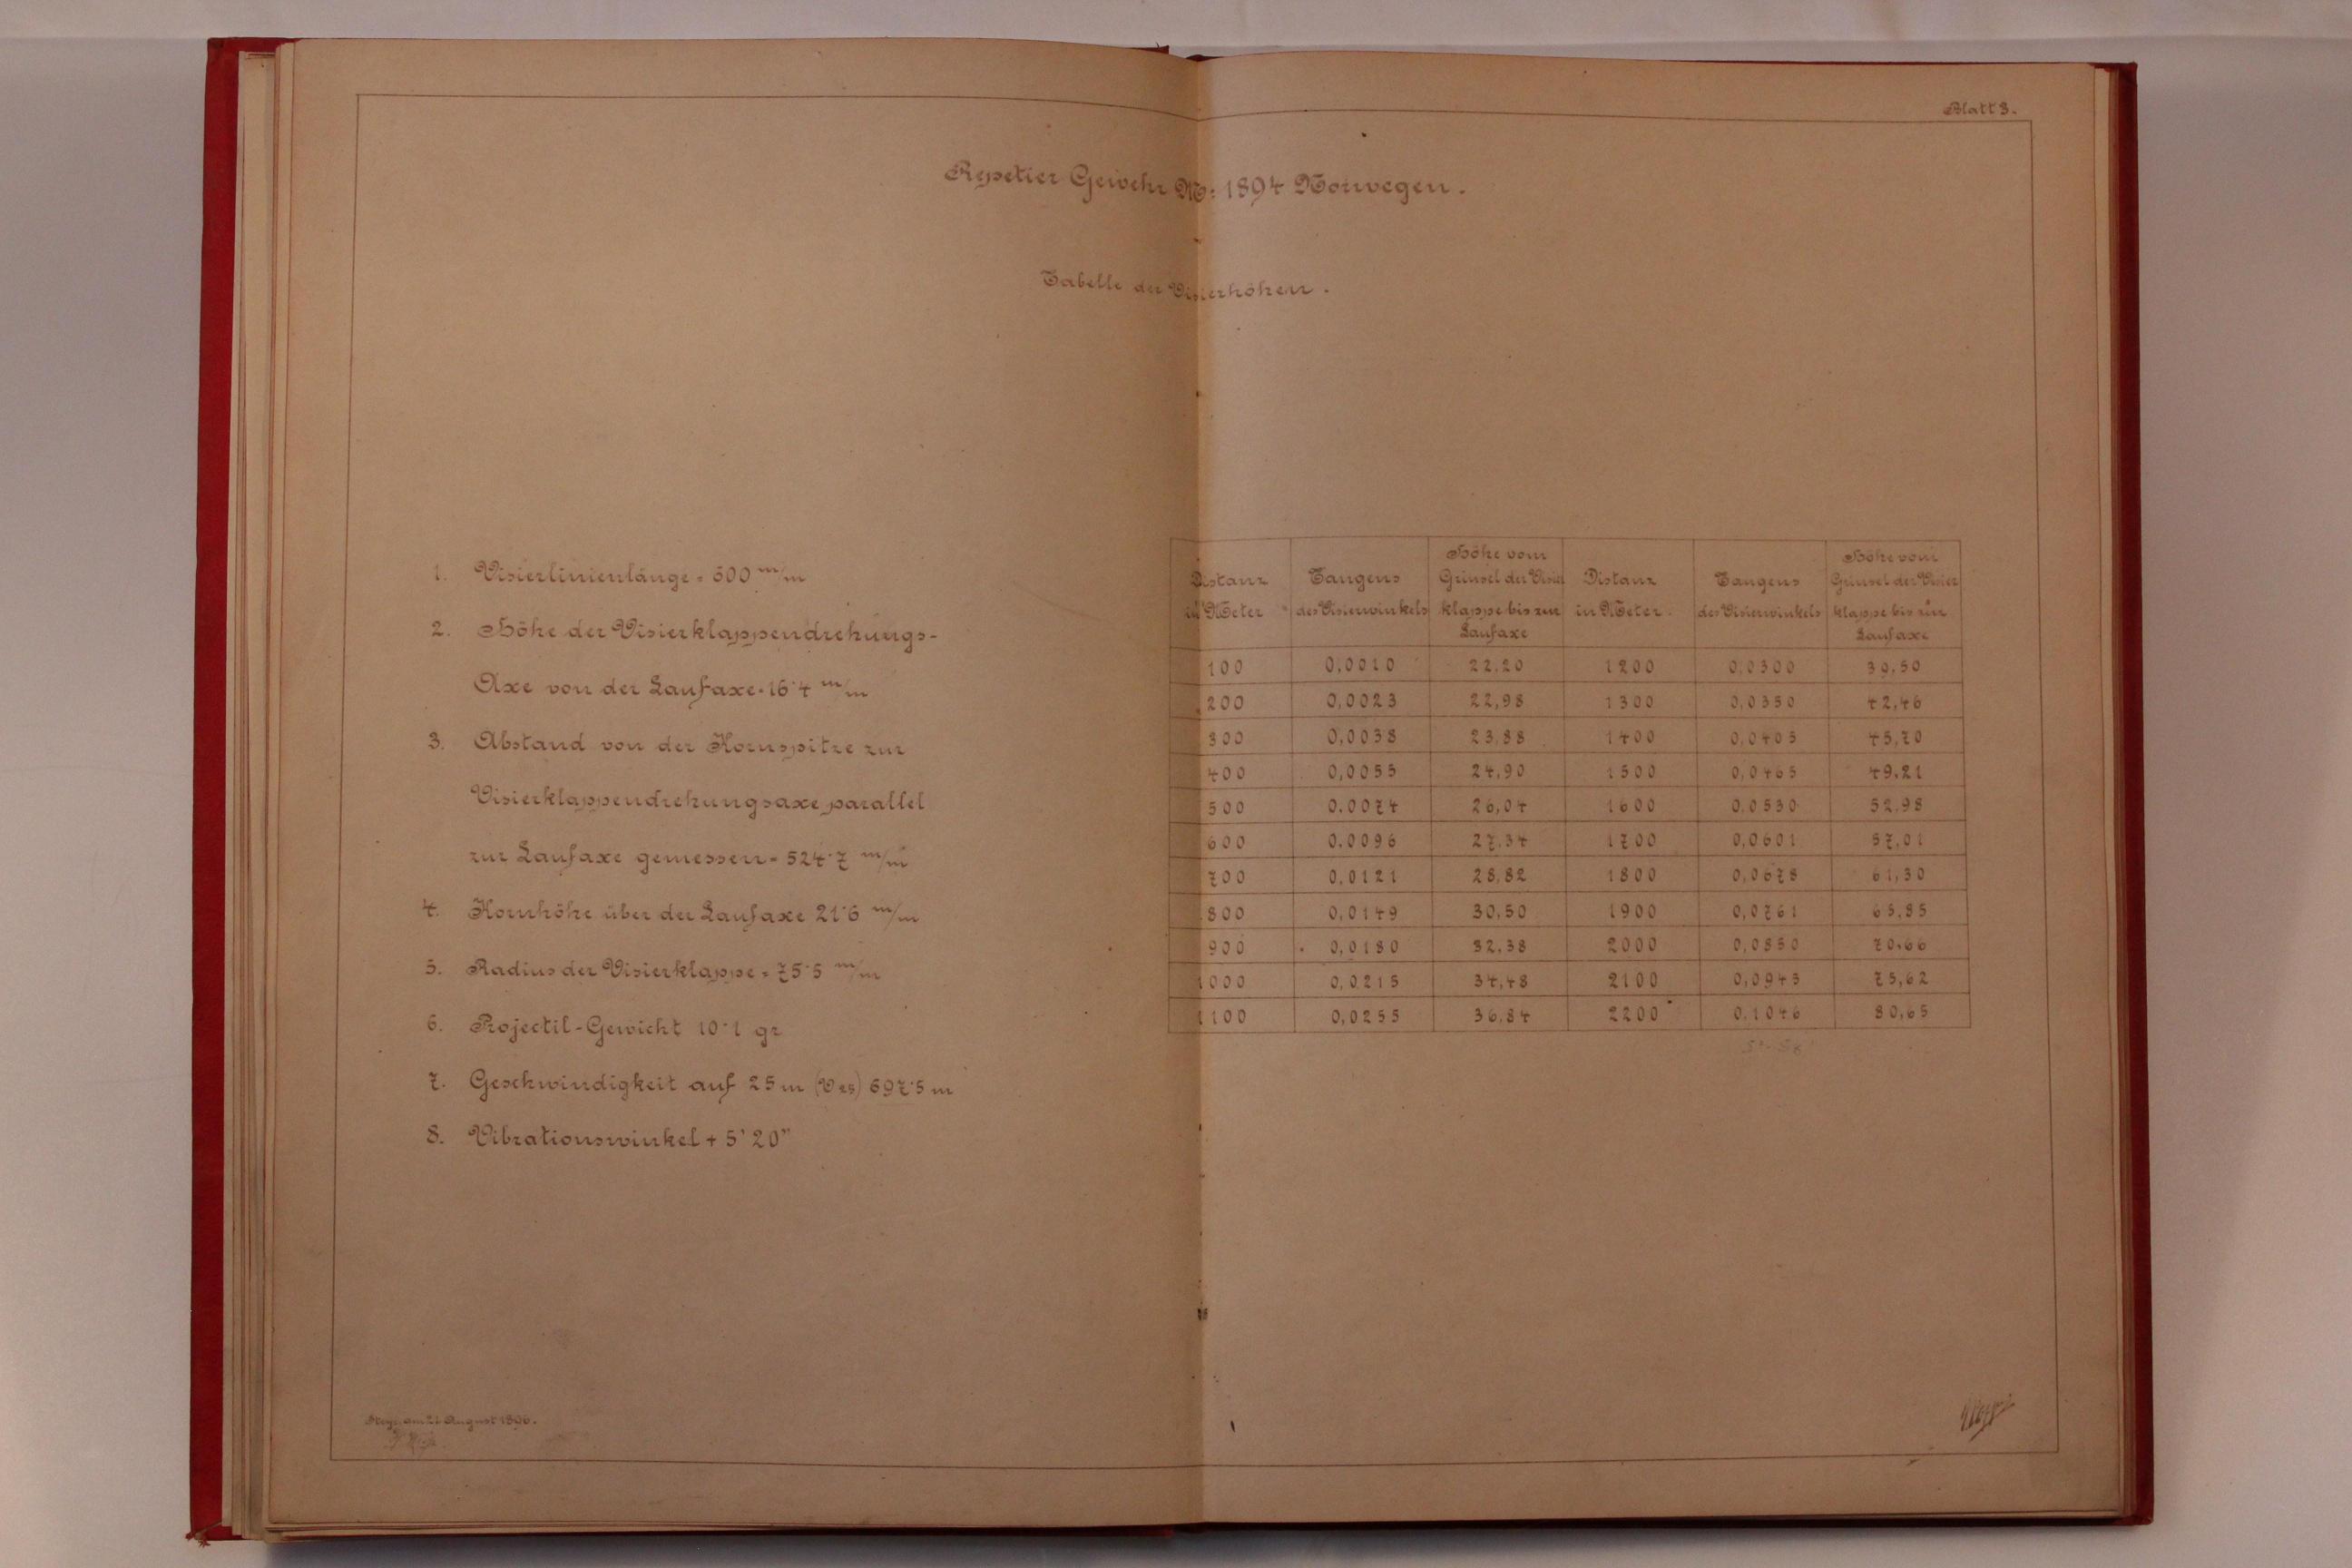 Blatt 3.
Repetier Gewehr M: 1894 Norwegen.
Tabelle der Visierhöhen.
1. Visierlinienlänge = 600 m/m
2. Höhe der Visierklappendrehungs-
Axe von der Laufaxe = 16·4 m/m
3. Abstand von der Kornspitze zur
Visierklappendrehungsaxe parallel
zur Laufaxe gemessen = 524·7 m/m
4. Kornhöhe über der Laufaxe 21·6 m/m
5. Radius der Visierklappe = 75·5 m/m
6. Projectil-Gewicht 10·1 gr
7. Geschwindigkeit auf 25 m (V25) 697·5 m
8. Vibrationswinkel + 5' 20"
Distanz in Meter Tangens des Visierwinkels Höhe vom Grinsel der Visier klappe bis zur Laufaxe Distanz in Meter. Tangens des Visierwinkels Höhe vom Grinsel der Visier klappe bis zur Laufaxe
100 0,0010 22.20 1200 0,0300 39,50
200 0,0023 22,98 1300 0,0350 42,46
300 0,0038 23.88 1400 0,0405 45,70
400 0,0055 24,90 1500 0,0465 49.21
500 0.0074 26,04 1600 0.0530 52.98
600 0.0096 27.34 1700 0,0601 57,01
700 0,0121 28,82 1800 0,0678 61,30
800 0,0149 30,50 1900 0,0761 65,85
900 0,0180 32,38 2000 0,0850 70.66
1000 0,0215 34,48 2100 0,0945 75,62
1100 0,0255 36,84 2200 0,1046 80,65
Steyr, am 21 August 1896.